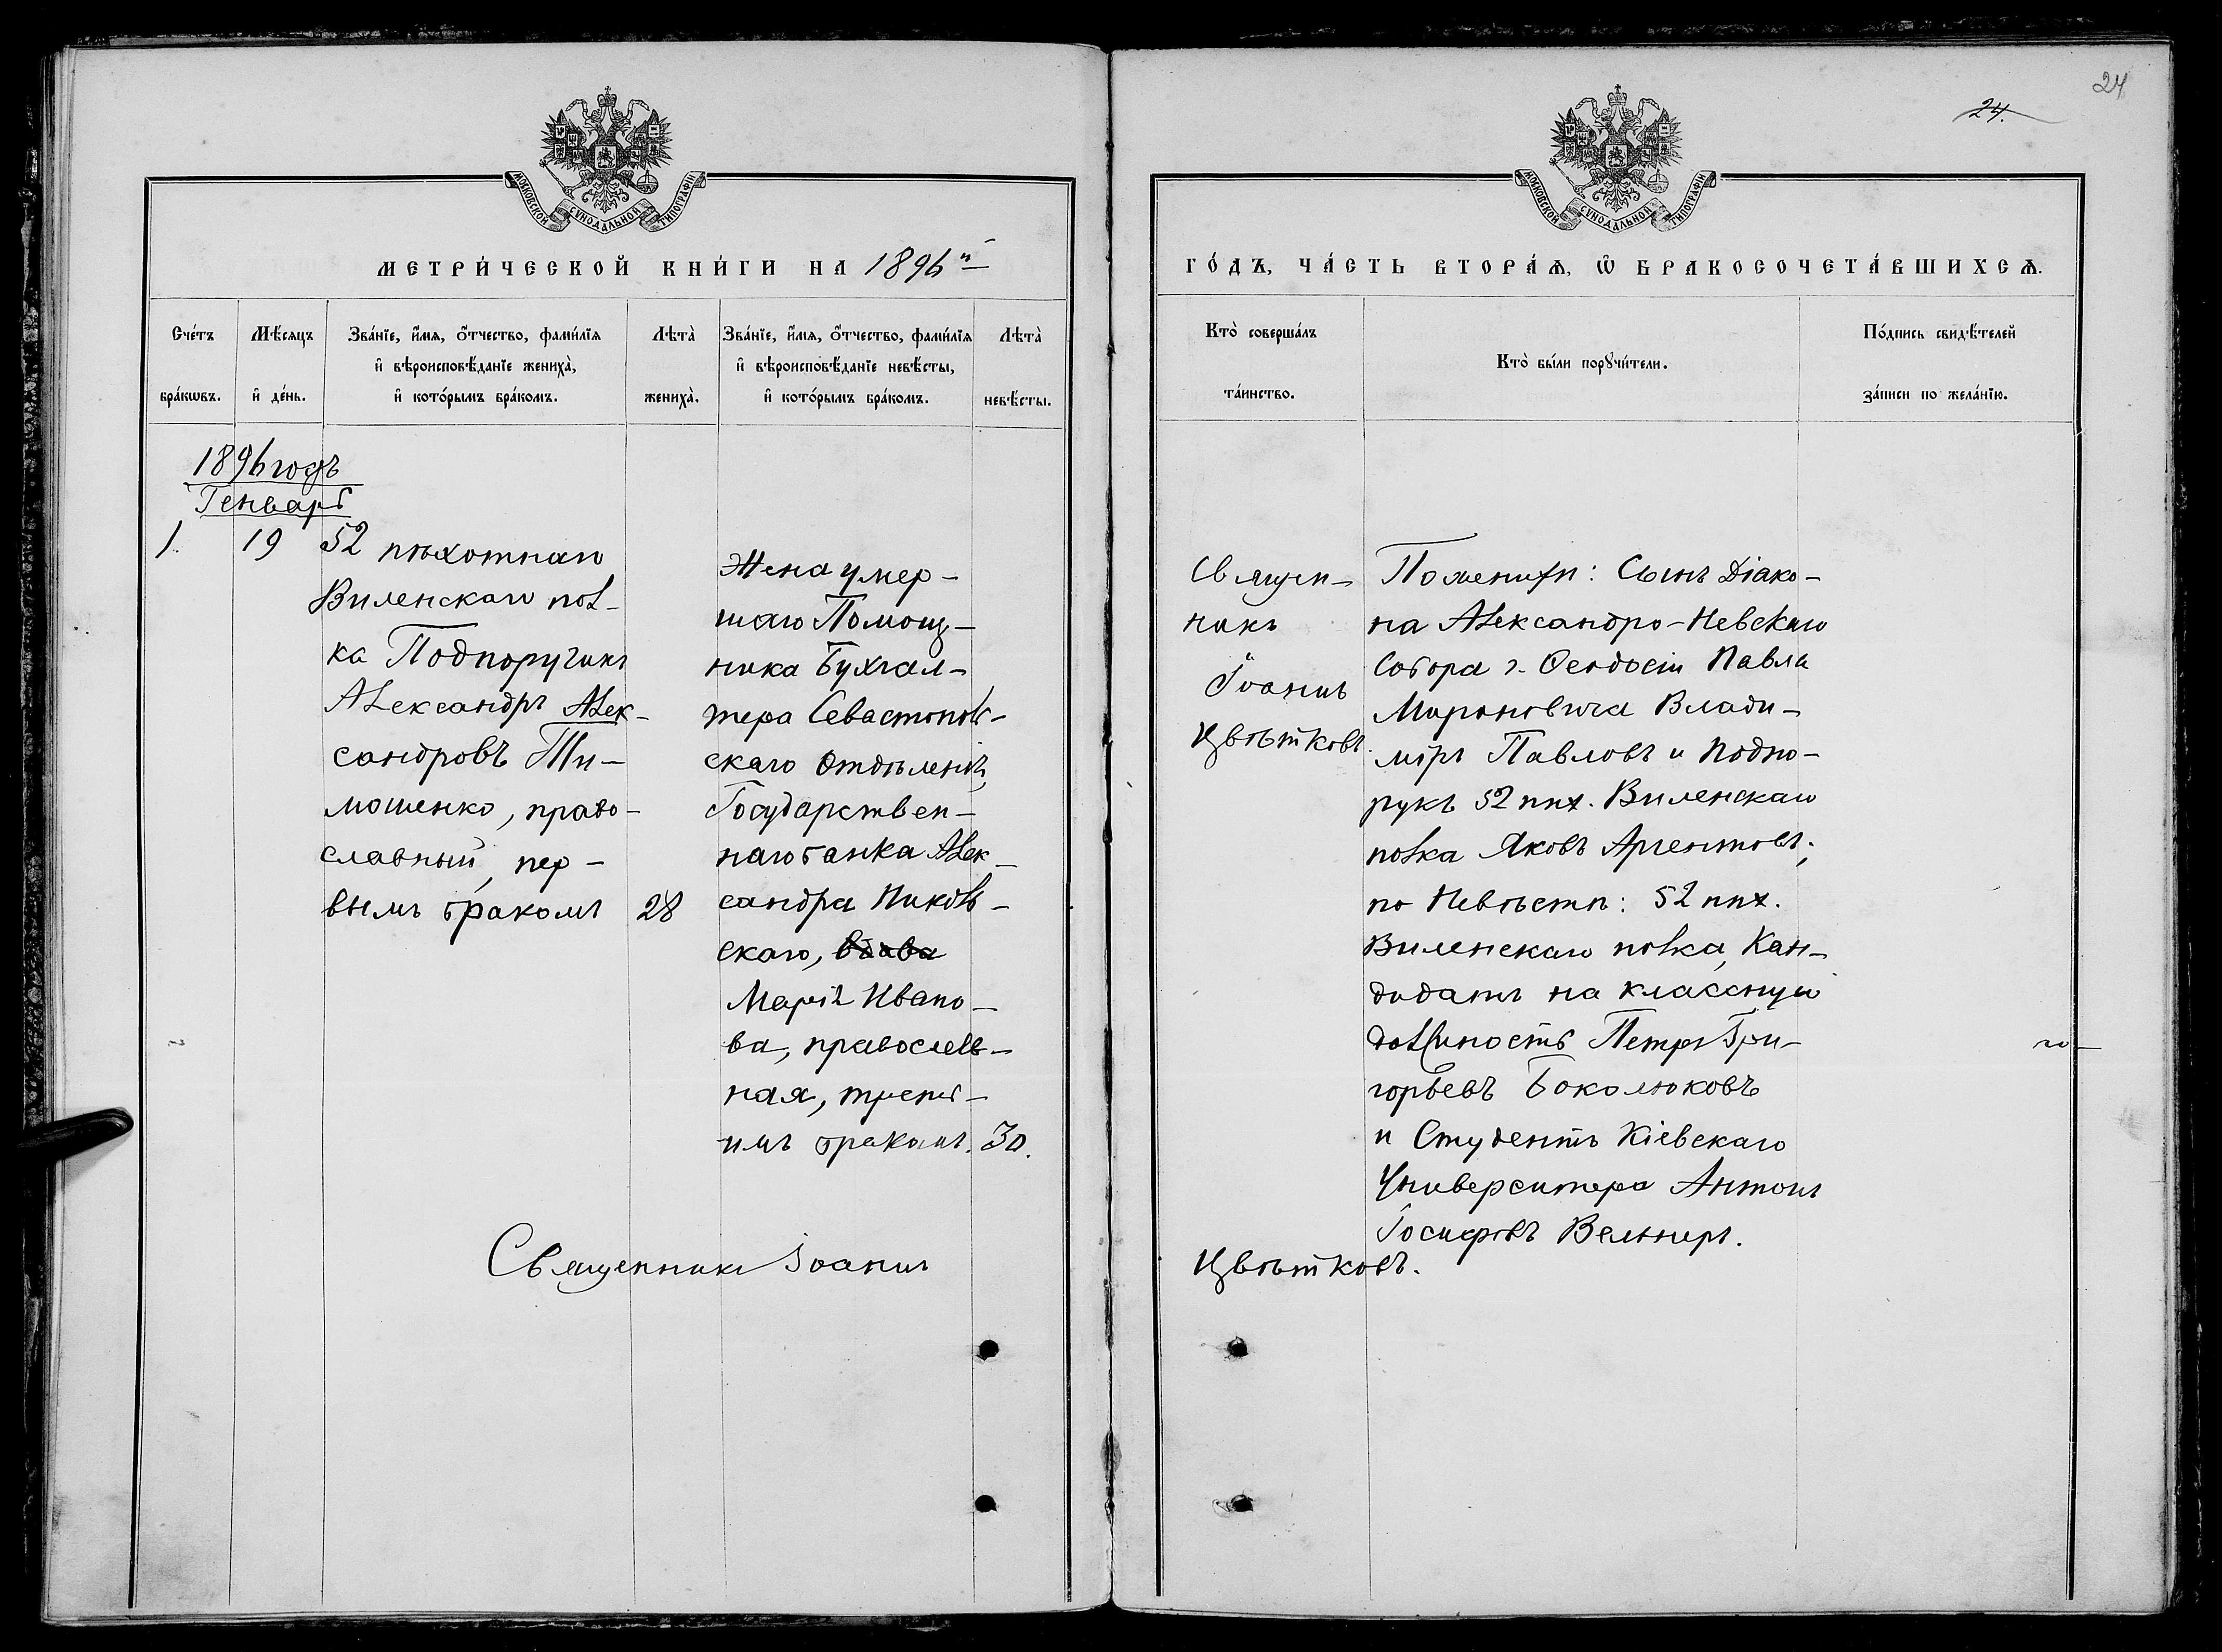 24
24.
МОСКОВСКОЙ СУНОДАЛЬНОЙ ТИПОГРАФІИ
МЕТРИ́ЧЕСКОЙ КНИ́ГИ НА 1896й
Сче́тъ бра́кѡвъ.
Мѣ́сяцъ и҆ де́нь.
Зва́нїе, и҆́мя, ѻ҆́тчество, фами́лїя
и҆ вѣроисповѣ́данїе жениха̀,
и҆ кото́рымъ бра́комъ.
Лѣ́та жениха̀.
Зва́нїе, и҆́мя, ѻ҆́тчество, фами́лїя
и҆ вѣроисповѣ́данїе невѣ́сты,
и҆ кото́рымъ бра́комъ.
Лѣ́та невѣ́сты.
1896 годъ
Генварь
1.
19
52 пѣхотнаго
Виленскаго пол-
ка Подпоручикъ
Александръ Алек-
сандровъ Ти-
мошенко, право-
славный, пер-
вымъ бракомъ
28
Жена умер-
шаго Помощ-
ника Бухгал-
тера Севастополь-
скаго Отдѣленія
Государствен-
наго банка Алек-
сандра Никол-
скаго, вдова
Марія Ивано-
ва, православ-
ная, треть-
имъ бракомъ.
30.
Священникъ Іоаннъ
МОСКОВСКОЙ СУНОДАЛЬНОЙ ТИПОГРАФІИ
ГО́ДЪ, ЧА́СТЬ ВТОРА́Ѧ, Ѽ БРАКОСОЧЕТА́ВШИХСѦ.
Кто̀ соверша́лъ
та́инство.
Кто̀ бы́ли порꙋчи́тели.
По́дпись свидѣ́телей
за́писи по жела́нїю.
Священ-
никъ
Іоаннъ
Цвѣтковъ.
По женихѣ: Сынъ Діако-
на Александро-Невскаго
Собора г. Ѳеодосіи Павла
Мироновича Влади-
міръ Павловъ и подпо-
рукъ 52 пѣх. Виленскаго
полка Яковъ Аргентовъ;
по Невѣстѣ: 52 пѣх.
Виленскаго полка, Кан-
дидатъ на классную
должность Петръ Гри-
горьевъ Боколюковъ
и Студентъ Кіевскаго
Университета Антонъ
Іосифовъ Вельнеръ.
Цвѣтковъ.